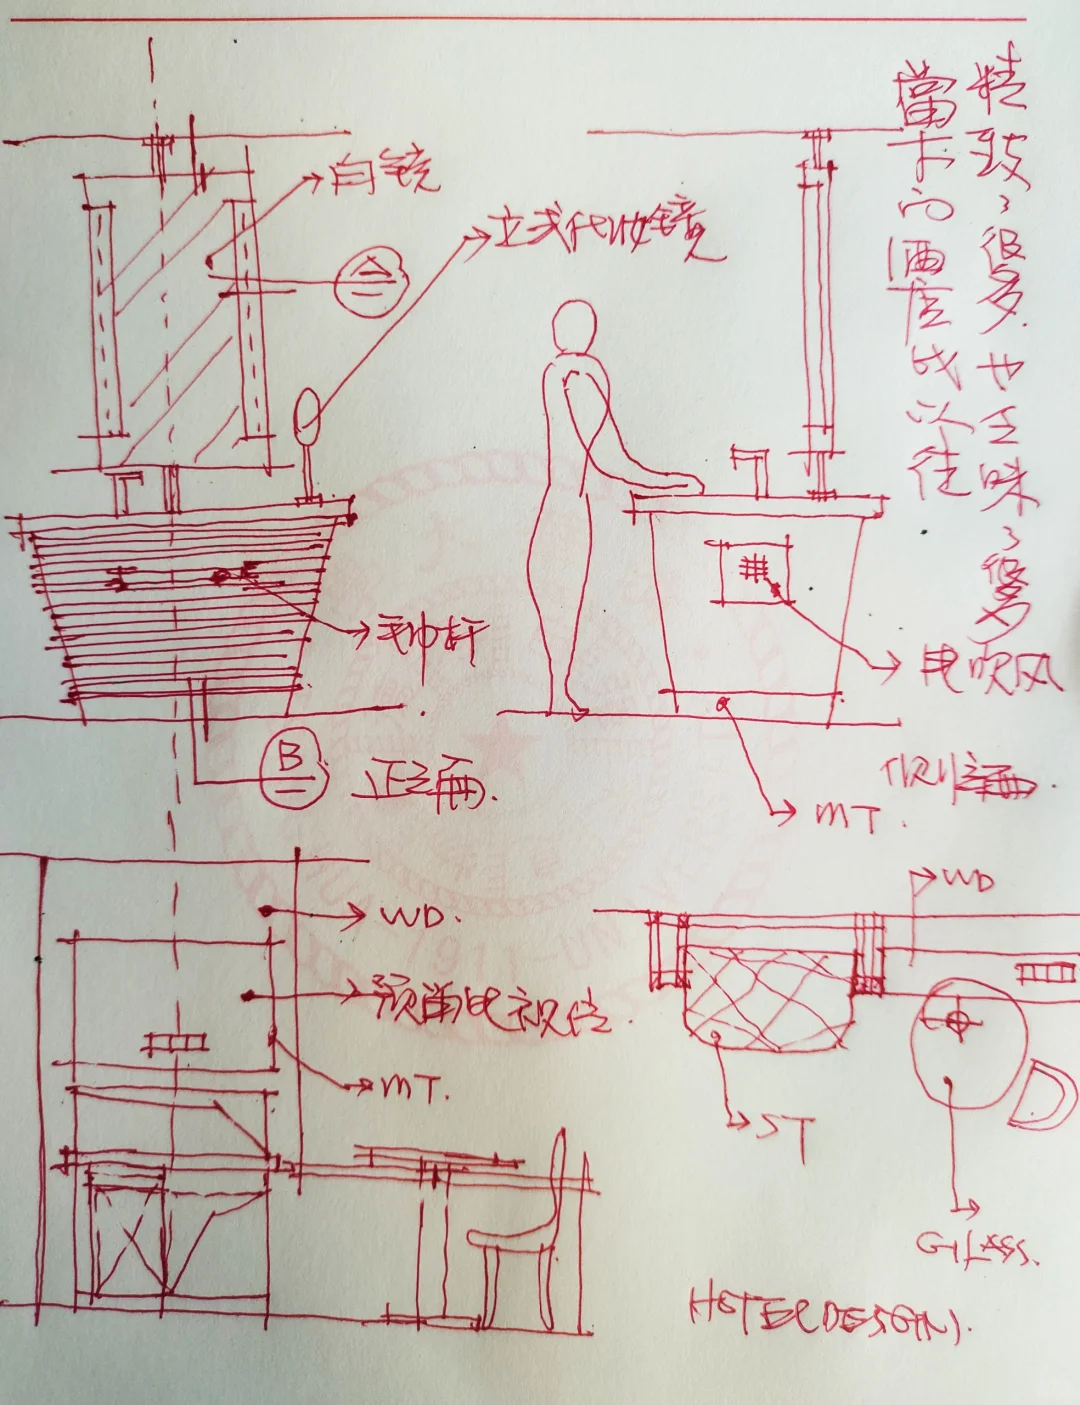 當下的酒店比以往
精致了很多也乏味了很多
白镜
立式化妆镜
A
毛巾杆
电吹风
B
正立面.
侧立面.
MT.
WD.
WD
预留电视位.
MT.
ST
GLASS.
(HOTEL DESIGN).
1911-UN